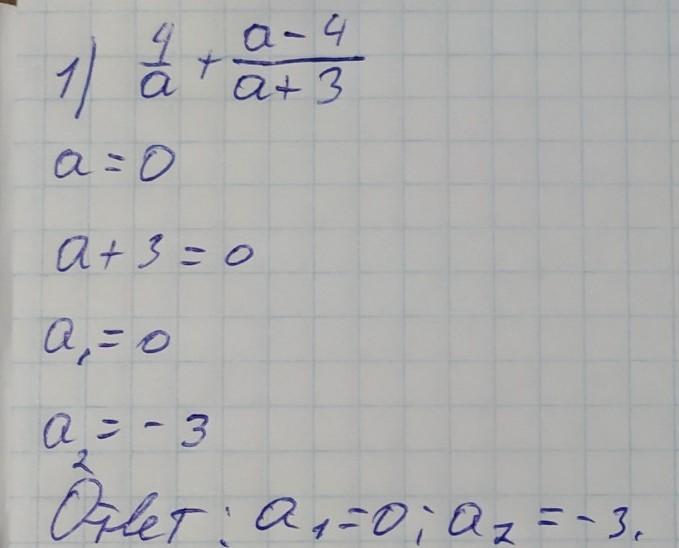 1) 4/a + (a-4)/(a+3)
a = 0
a + 3 = 0
a₁ = 0
a₂ = -3
Ответ: a₁ = 0; a₂ = -3.